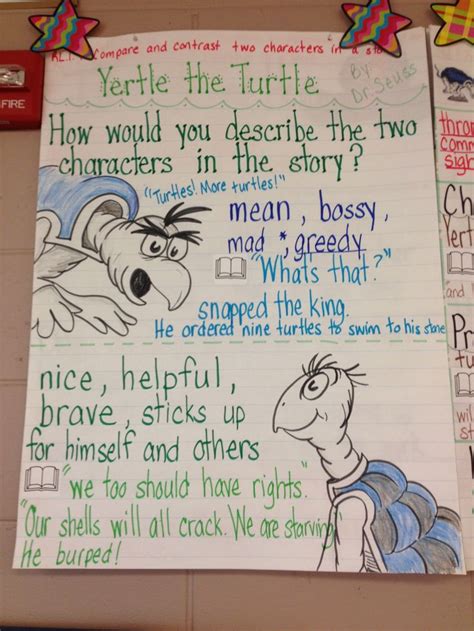 FIRE
Compare and contrast two characters in a sto
Yertle the Turtle
By
Dr. Seuss
How would you describe the two
characters in the story?
"Turtles! More turtles!"
mean, bossy,
mad *, greedy
"Whats that?"
snapped the king.
He ordered nine turtles to swim to his stone
nice, helpful,
brave, sticks up
for himself and others
"we too should have rights."
"Our shells will all crack. We are starving"
He burped!
thro
com
sigh
Ch
Yert
and
Pr
will
st